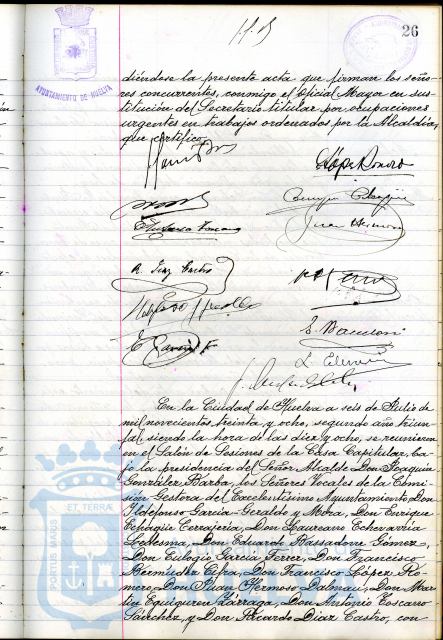 26
AYUNTAMIENTO DE HUELVA
diéndose la presente acta que firman los seño
res concurrentes, conmigo el Oficial Mayor en sus
titución del Secretario titular por ocupaciones
urgentes en trabajos ordenados por la Alcaldía,
que certifico.
López Romero
R. Diaz Castro
E. Bassadone
En la Ciudad de Huelva a seis de Julio de
mil novecientos treinta y ocho, segundo año triun
fal, siendo la hora de las diez y ocho, se reunieron
en el Salón de Sesiones de la Casa Capitular, ba
jo la presidencia del Señor Alcalde Don Joaquin
González Barba, los Señores Vocales de la Comi
sión Gestora del Excelentísimo Ayuntamiento, Don
Ildefonso Garcia-Geraldo y Mora, Don Enrique
Echazie Cerrajeria, Don Laureano Echevarria
Ledesma, Don Eduardo Bassadone Gómez,
Don Eulogio Garcia Ferrer, Don Francisco
Bermúdez Cifra, Don Francisco López Ro
mero, Don Juan Hermoso Dalmau, Don Mar
tin Eguiguren Lárraga, Don Antonio Toscano
Sánchez, y Don Ricardo Diaz Castro, con
PORTUS MARIS ET TERRAE